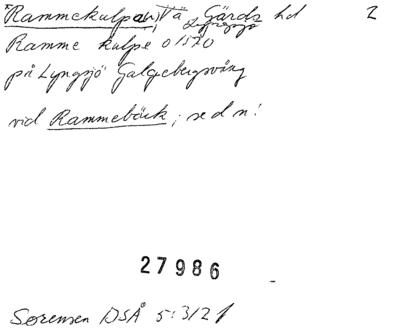 *Rammekulpan, Tä Gärds hd 2
Lyngsjö
Ramme kulpe o 1570
på Lyngsjö Galgebergsvång
vid Rammebäck; se d n!
27986
Sørensen DSÅ 5:3/21